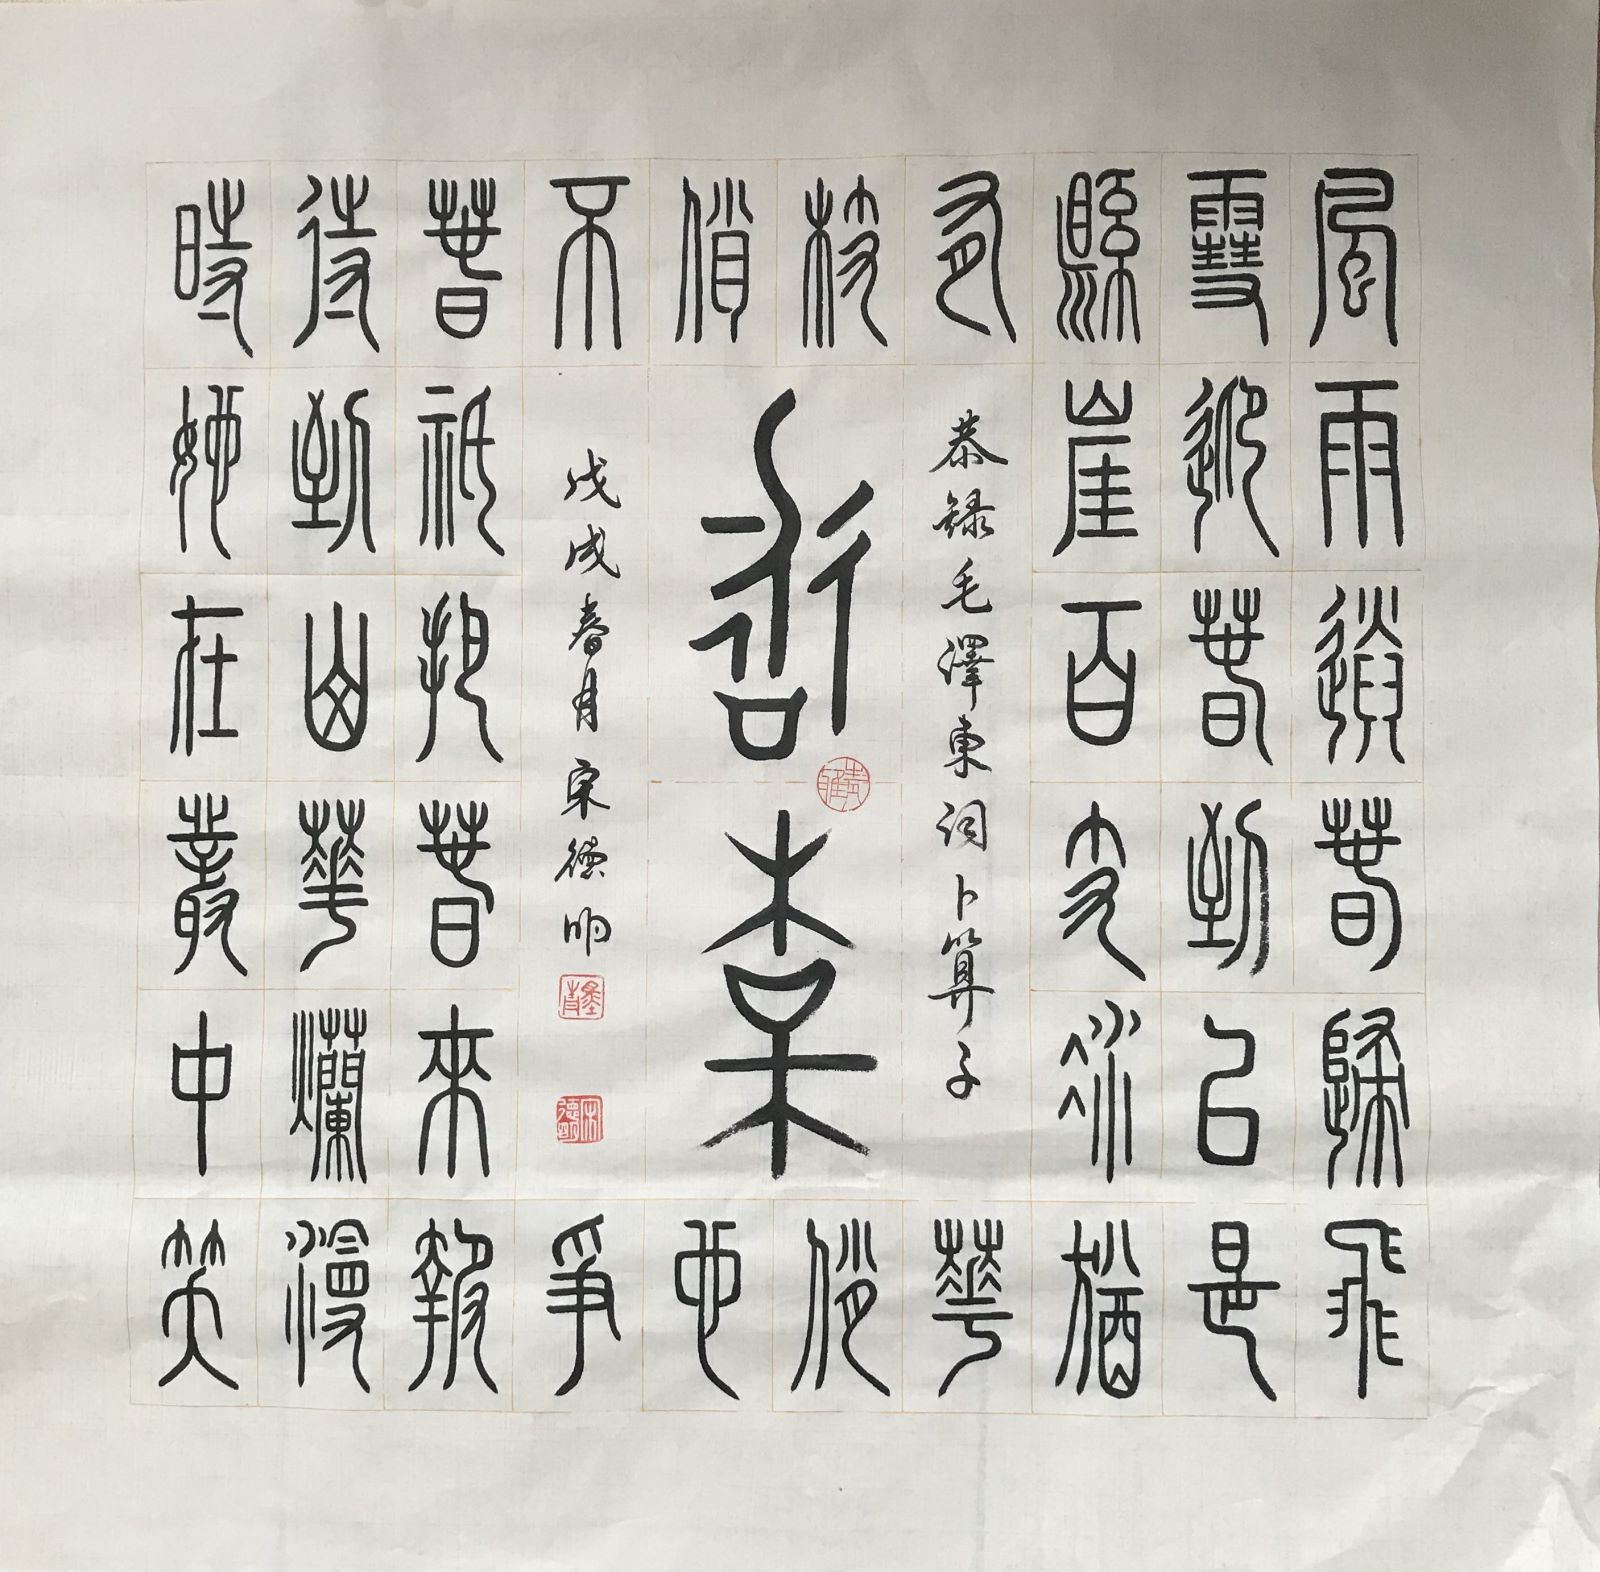 風雨送春歸飛
雪迎春到已是
縣崖百丈冰猶
有華
枝俏
俏也
不爭
春祇把春來報
待到山華爛漫
時她在叢中笑
咏梅
恭録毛澤東詞卜算子
戊戌春月宋德明
宋德明